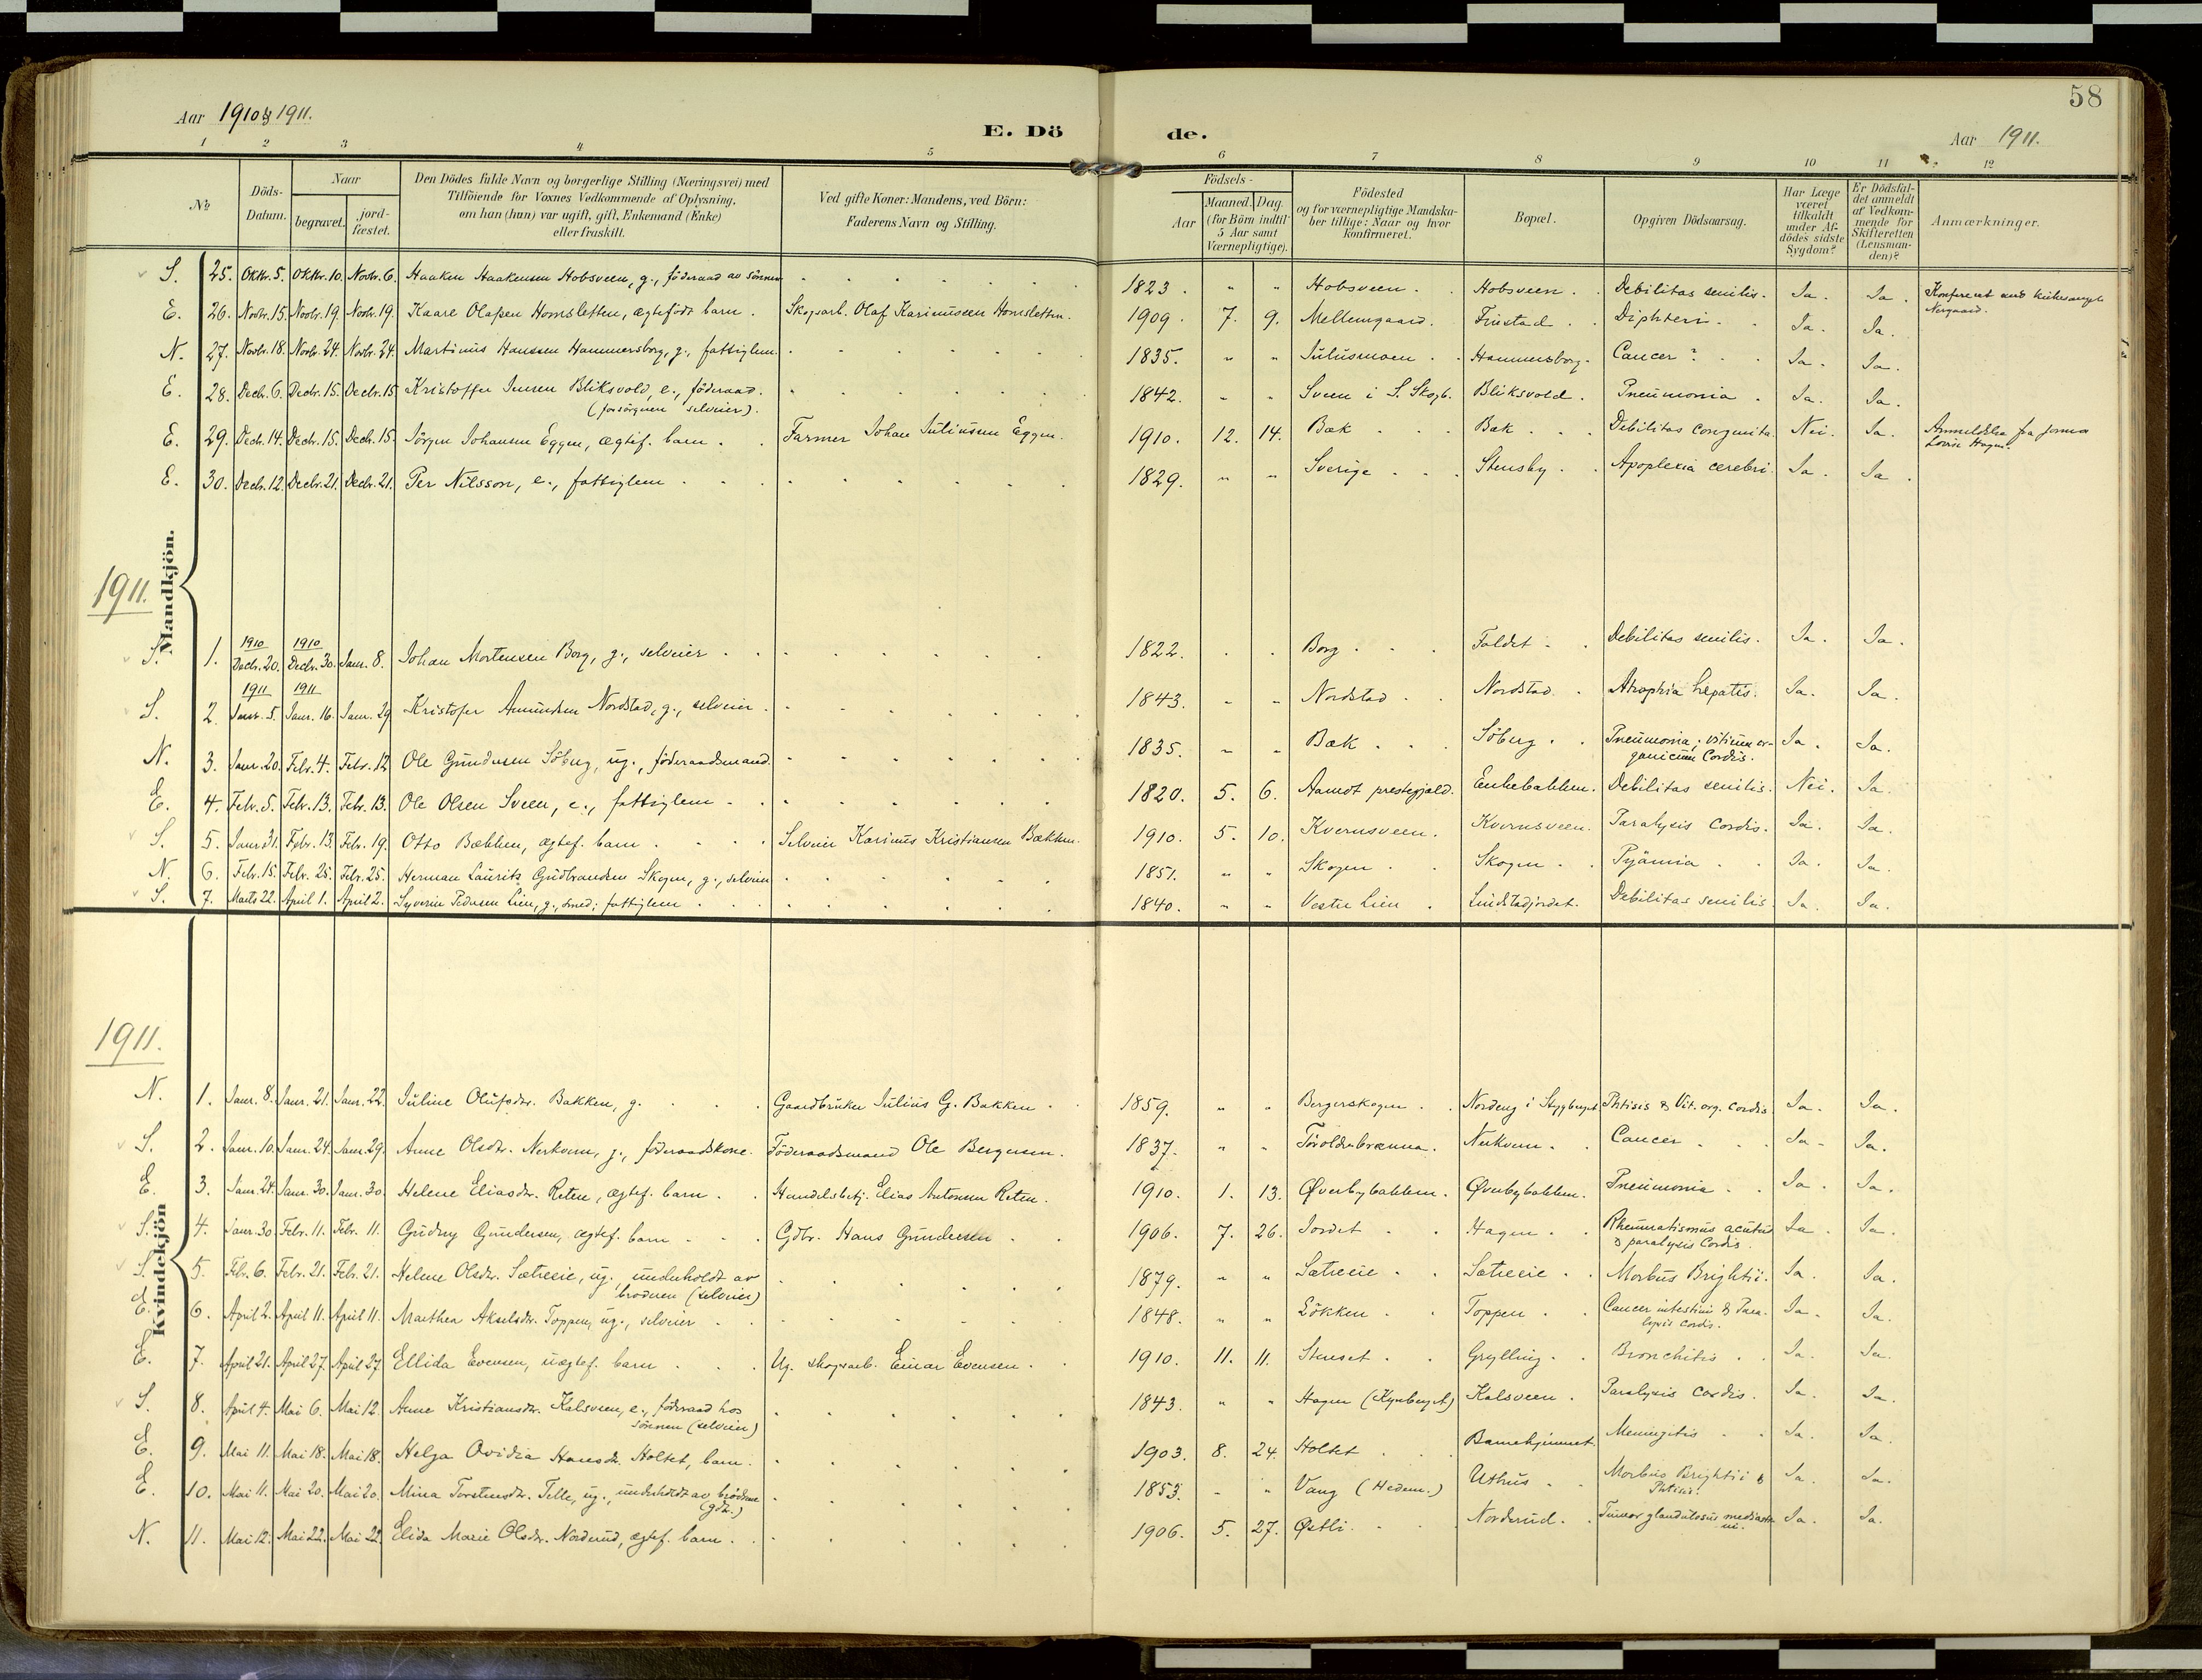 58
Aar 1910 & 1911.
E. Dö
de.
Aar 1911.
1 2 3 4 5 6 7 8 9 10 11 12
№
Döds-Datum.
Naar
begravet.
jord-fæstet.
Den Dödes fulde Navn og borgerlige Stilling (Næringsvei) med
Tilföiende for Voxnes Vedkommende af Oplysning,
om han (hun) var ugift, gift, Enkemand (Enke)
eller fraskilt.
Ved gifte Koner: Mandens, ved Börn:
Faderens Navn og Stilling.
Födsels-
Aar
Maaned. Dag.
(for Börn indtil
5 Aar samt
Værnepligtige).
Födested
og for værnepligtige Mandska-
ber tillige: Naar og hvor
konfirmeret.
Bopæl.
Opgiven Dödsaarsag.
Har Læge
været
tilkaldt
under Af-
dödes sidste
Sygdom?
Er Dödsfal-
det anmeldt
af Vedkom-
mende for
Skifteretten
(Lensman-
den)?
Anmærkninger.
Mandkjön.
S. 25. Oktbr. 5. Oktbr. 10. Novbr. 6. Haaken Haakensen Hobsveen, g., föderaad av sönnen 1823. " " Hobsveen. Hobsveen. Debilitas senilis. Ja. Ja.
E. 26. Novbr. 15. Novbr. 19. Novbr. 19. Kaare Olafsen Homsletten, ægtefödt barn. Skogsarb. Olaf Karinussen Homsletten. 1909. 7. 9. Mellemgaard. Finstad. Diphteri. Ja. Ja.
N. 27. Novbr. 18. Novbr. 24. Novbr. 24. Martinus Hanssen Hammersborg, g., fattiglem. 1835. " " Juliusmoen. Hammersborg. Cancer? Ja. Ja.
E. 28. Decbr. 6. Decbr. 15. Decbr. 15. Kristoffer Jensen Bliksvold, e., föderaad.
(forsörgeren selveier). 1842. " " Sveen i S. Skogb. Bliksvold. Pneumonia. Ja. Ja.
E. 29. Decbr. 14. Decbr. 15. Decbr. 15. Jörgen Johansen Eggen, ægtef. barn. Farmer Johan Juliussen Eggen. 1910. 12. 14. Bæk Bæk Debilitas congenita. Nei. Ja.
E. 30. Decbr. 12. Decbr. 21. Decbr. 21. Per Nilsson, e., fattiglem 1829. " " Sverige Stensby. Apoplexia cerebri. Ja. Ja.
1911.
S. 1. 1910 Decbr. 20. 1910 Decbr. 30. Janr. 8. Johan Mortensen Borg, g., selveier 1822. Borg Faldet Debilitas senilis. Ja. Ja.
S. 2. 1911 Janr. 5. 1911 Janr. 16. Janr. 29 Kristofer Amundsen Nordstad, g., selveier. 1843. " " Nordstad Nordstad. Atrophia hepatis. Ja. Ja.
N. 3. Janr. 20. Febr. 4. Febr. 12 Ole Gundersen Söberg, ug., föderaadsmand. 1835. " " Bæk Söberg. Pneumonia; vitium or-
ganicum Cordis. Ja. Ja.
E. 4. Febr. 5. Febr. 13. Febr. 13. Ole Olsen Sveen, e., fattiglem 1820. 5. 6. Aamot prestegjæld. Enkebakken. Debilitas senilis. Nei. Ja.
S. 5. Janr. 31. Febr. 13. Febr. 19. Otto Bækken, ægtef. barn Selveier Karinus Kristiansen Bækken. 1910. 5. 10. Kvernsveen. Kvernsveen. Paralysis Cordis. Ja. Ja.
N. 6. Febr. 15. Febr. 25. Febr. 25. Herman Laurits Gudbrandsen Skogen, g., selveier 1851. " " Skogen Skogen Pyämia Ja. Ja.
S. 7. Marts 22. April 1. April 2. Syverin Pedersen Lien, g., smed; fattiglem 1840. " " Vestre Lien. Lindstadjordet. Debilitas senilis Ja. Ja.
1911.
Kvindekjön
N. 1. Janr. 8. Janr. 21. Janr. 22. Juline Olufsdtr. Bakken, g. Gaardbruker Julius G. Bakken. 1859. " " Bergerskogen. Nordeng i Stygberget Phtisis & Vit. org. cordis Ja. Ja.
S. 2. Janr. 10. Janr. 24. Janr. 29. Anne Olsdtr. Nerkvern, g., föderaadskone. Föderaadsmand Ole Bergersen. 1837. " " Nerkvern. Cancer Ja. Ja.
E. 3. Janr. 24. Janr. 30. Janr. 30. Helene Eliasdtr. Reten, ægtef. barn. Handelsbetj. Elias Antonsen Reten. 1910. 1. 13. Øverbybakken. Øverbybakken. Pneumonia Ja. Ja.
S. 4. Janr. 30. Febr. 11. Febr. 11. Gudny Gundersen, ægtef. barn Gdbr. Hans Gundersen 1906. 7. 26. Jordet Hagen Rheumatismus acutus
& paralysis Cordis. Ja. Ja.
S. 5. Febr. 6. Febr. 21. Febr. 21. Helene Olsdtr. Sætreeie, ug., underholdt av
broderen (selveier) 1879. " " Sætreeie. Sætreeie. Morbus Brightii. Ja. Ja.
E. 6. April 2. April 11. April 11. Marthea Akselsdtr. Toppen, ug., selveier 1848. " " Lökken Toppen Cancer intestini & Para-
lysis cordis. Ja. Ja.
E. 7. April 21. April 27. April 27 Ellida Evensen, uægtef. barn Ug. skogsarb. Einar Evensen. 1910. 11. 11. Stenset Grylling. Bronchitis Ja. Ja.
S. 8. April 4. Mai 6. Mai 12. Anne Kristiansdtr. Kalsveen, e., föderaad hos
sönnen (selveier) 1843. " " Hagen (Kynberget) Kalsveen. Paralysis cordis. Ja. Ja.
E. 9. Mai 11. Mai 18. Mai 18. Helga Ovidia Hansdtr. Holtet, barn. 1903. 8. 24. Holtet Barnehjemmet. Meningitis Ja. Ja.
E. 10. Mai 11. Mai 20. Mai 20. Mina Torstensdtr. Telle, ug., underholdt av brödrene
(gdr.) 1853. " " Vang (Hedem.) Uthus Morbus Brightii &
Phtisis. Ja. Ja.
N. 11. Mai 12. Mai 22. Mai 22. Elida Marie Olsdtr. Norderud, ægtef. barn. 1906. 5. 27. Østli. Norderud. Tumor glandulosus mediasti-
ni. Ja. Ja.